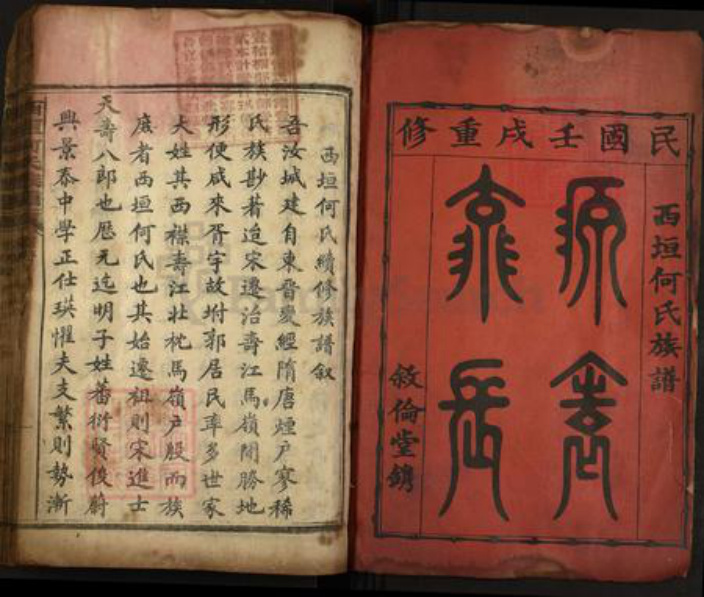 民國壬戌重修
西垣何氏族譜
源遠
流長
敘倫堂鐫
西垣何氏續修族譜叙
吾汝城建自東晉変經隋唐煙户寥稀
氏族尠著迨宋遷治壽江馬嶺間勝地
形便咸來胥宇故坿郭居民率多世家
大姓其西襟壽江北枕馬嶺户殷而族
庶者西垣何氏也其始遷祖則宋進士
天壽八郎也歷元迄明子姓蕃衍賢俊蔚
興景泰中學正仕瑛懼夫支繁則勢漸